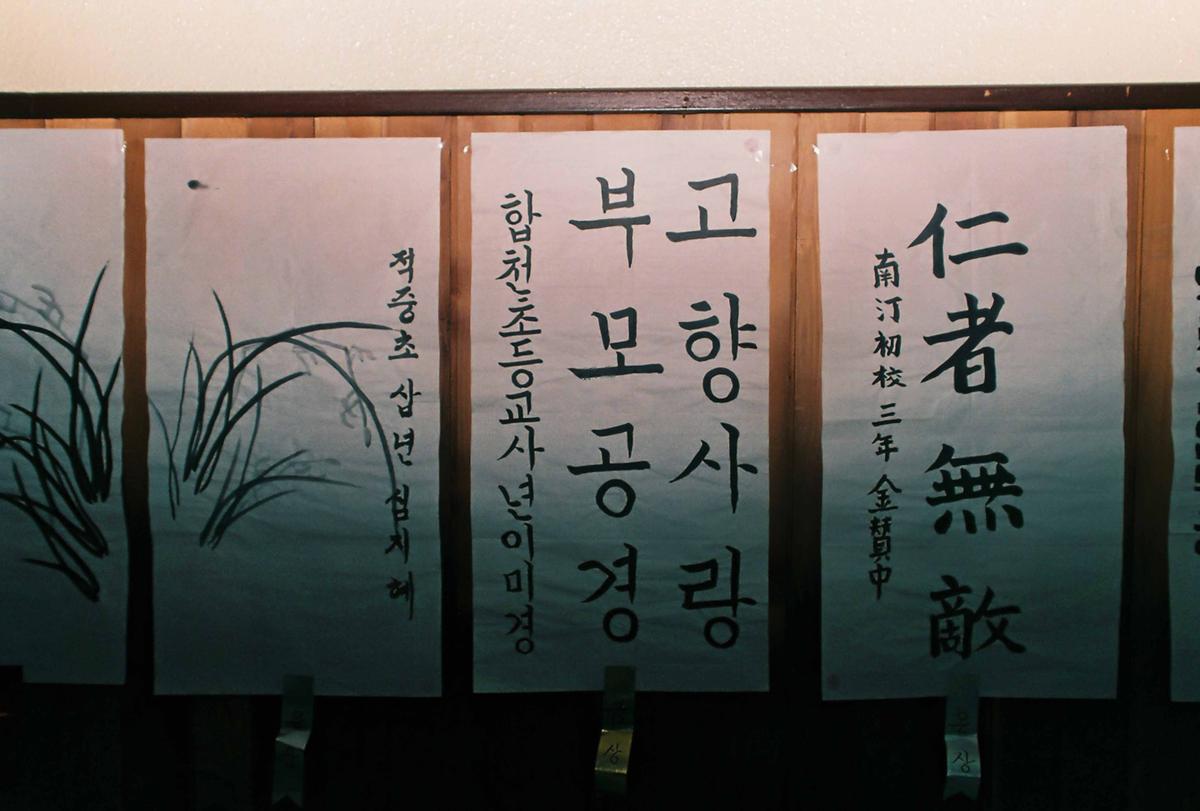 적중초 삼년 심지혜
고향사랑
부모공경
합천초등교사년이미경
仁者無敵
南汀初校三年 金贊中
상
은상